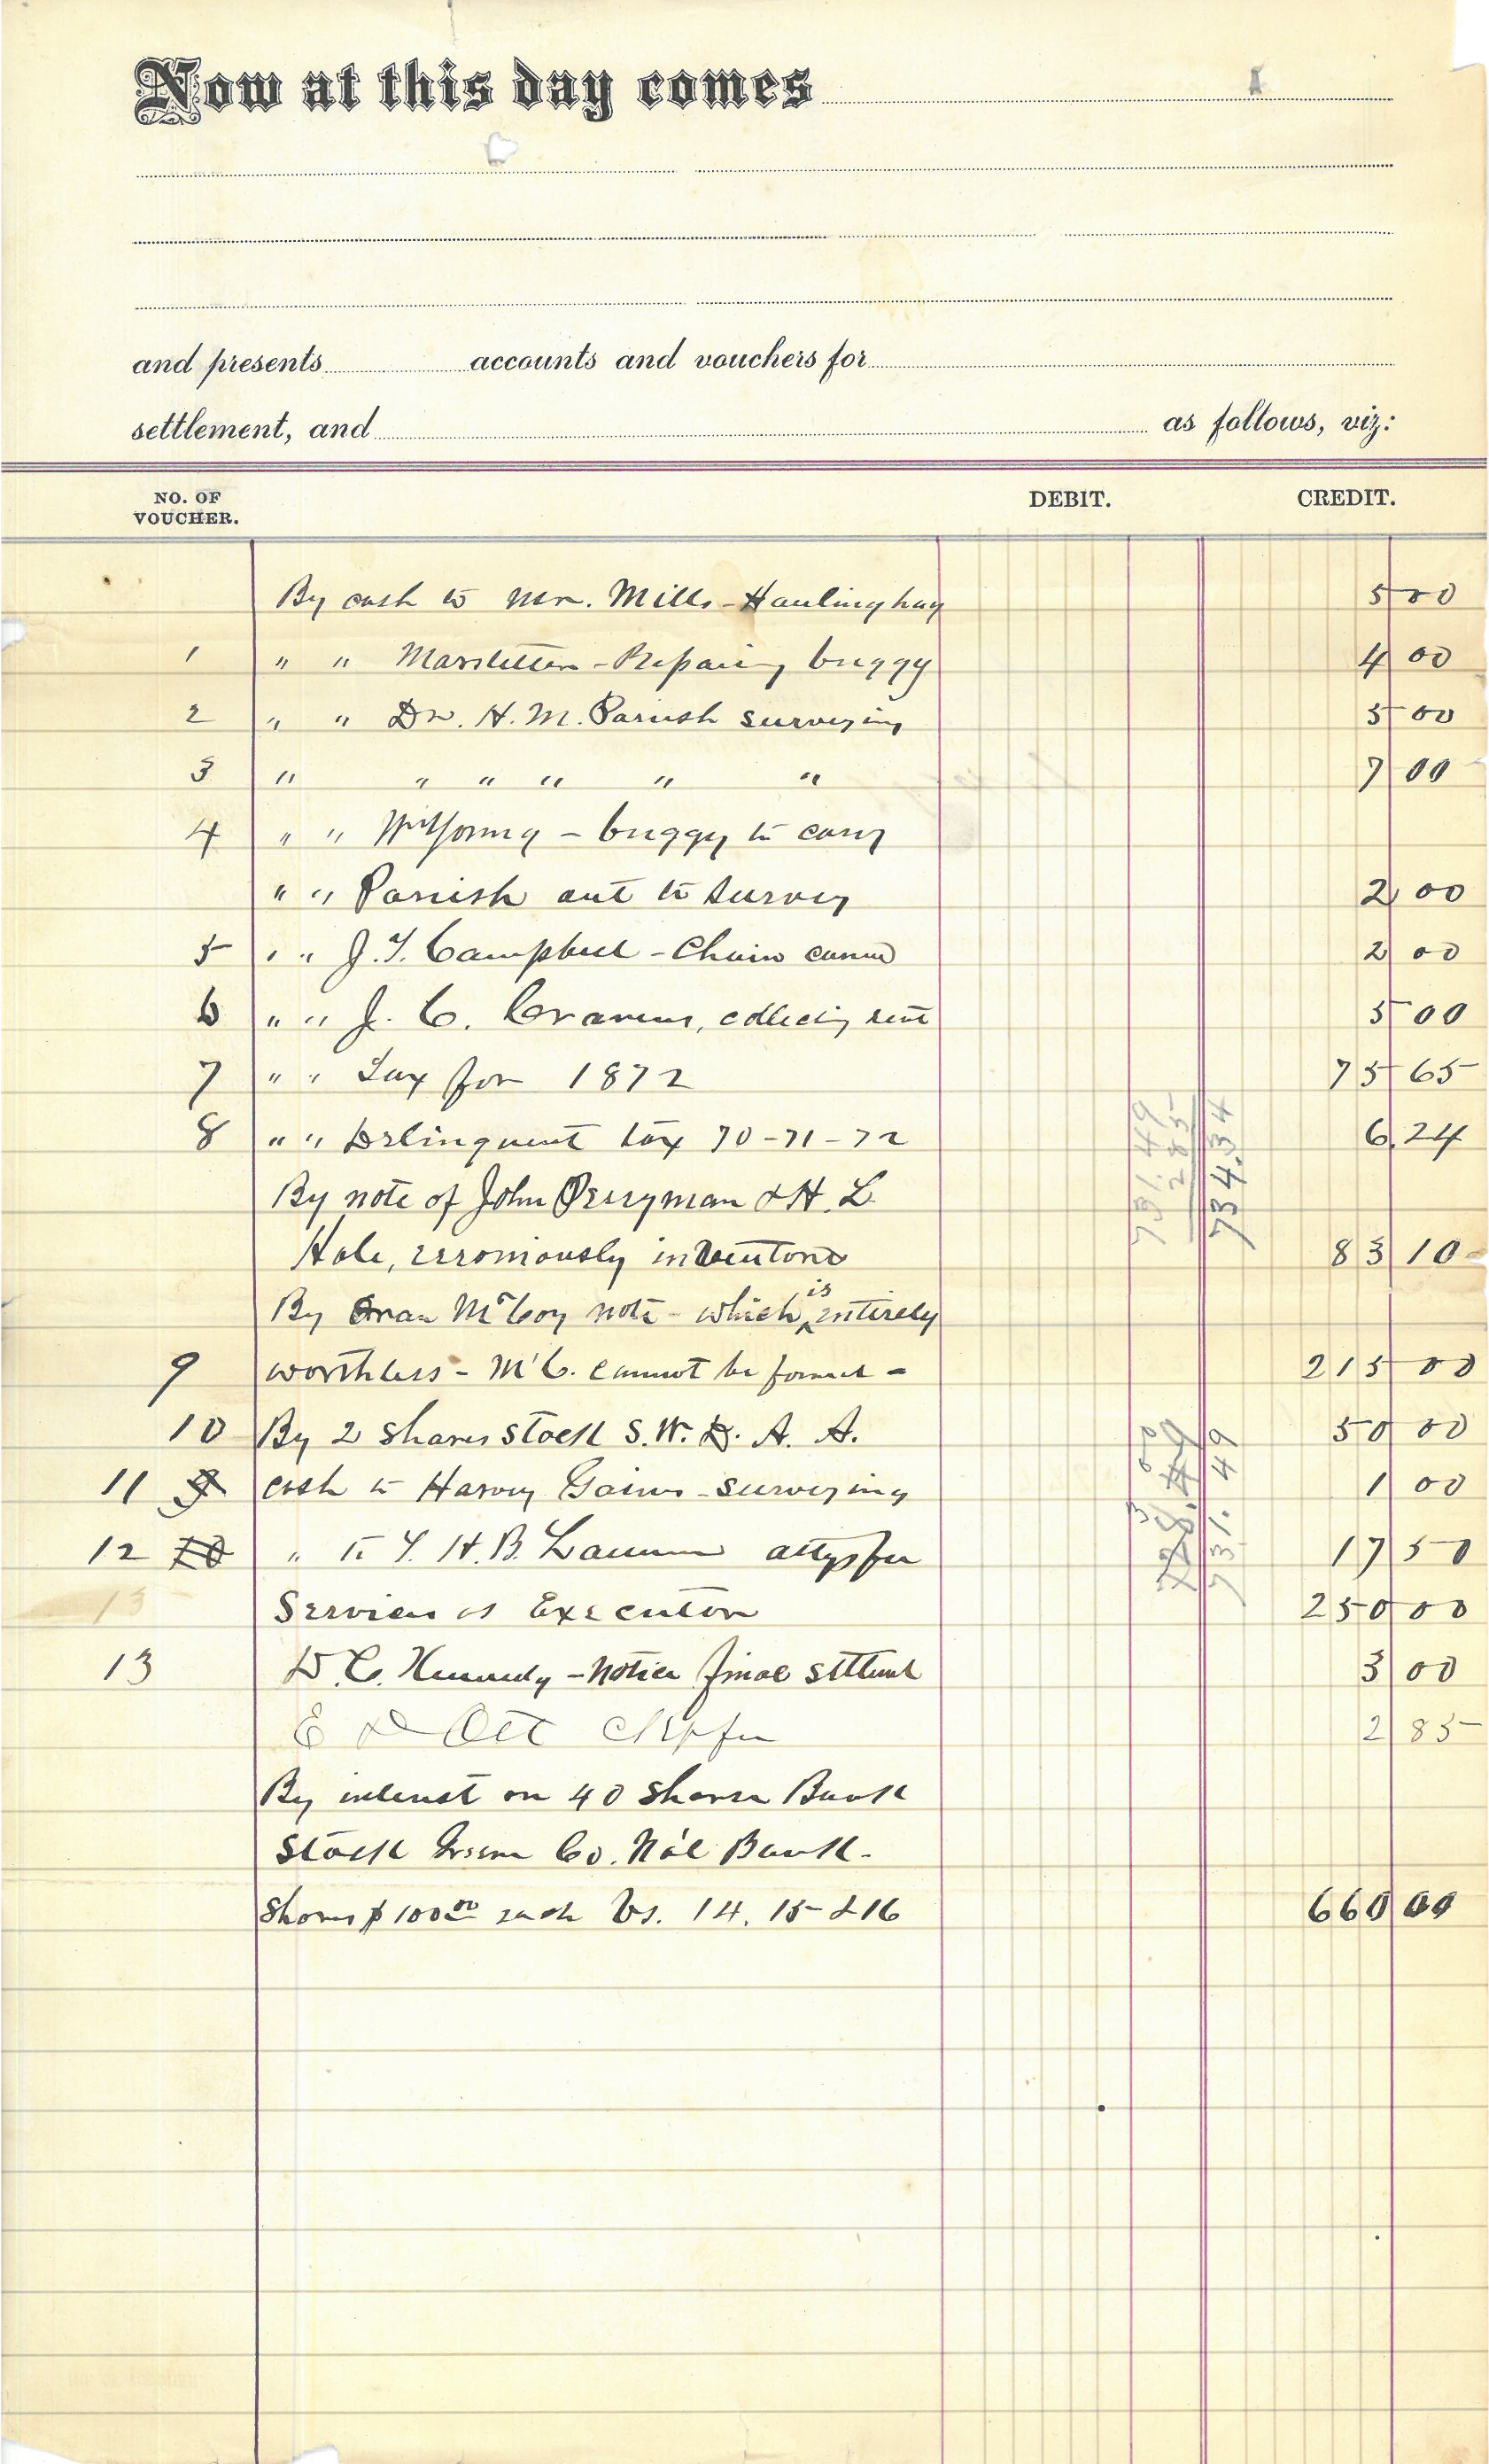 Now at this day comes
and presents accounts and vouchers for
settlement, and as follows, viz:
NO. OF VOUCHER. DEBIT. CREDIT.
By cash to Mr. Mills - Hauling hay 5 00
1 " " - Repairing buggy 4 00
2 " " Dr. H. M. Parrish surveying 5 00
3 " " " " " " 7 00
4 " " Wm Young - buggy to carry
" " Parrish out to survey 2 00
5 " " J. T. Campbell - Chain 2 00
6 " " J. C. Cravens, collecting rent 5 00
7 " " Tax for 1872 75 65
8 " " Delinquent tax 70-71-72 6 24
By note of John Perryman & H. L.
Hale, erroniously 83 10
By Oran McCoy note - which is entirely
9 worthless - McC. cannot be found - 215 00
10 By 2 shares stock S. W. D. A. A. 50 00
11 9 cash to Harvey Gaines - surveying 1 00
12 10 " to T. H. B. attys fee 17 50
13 Services as Executor 250 00
13 D. C. Kennedy - Notice final 3 00
E D Ott clk fee 2 85
By interest on 40 shares Bank
Stock Green Co. Na'l Bank -
Shares $100 00 each Vs. 14, 15 & 16 660 00
731.49
2 85
734.34
728.49
3 00
731.49